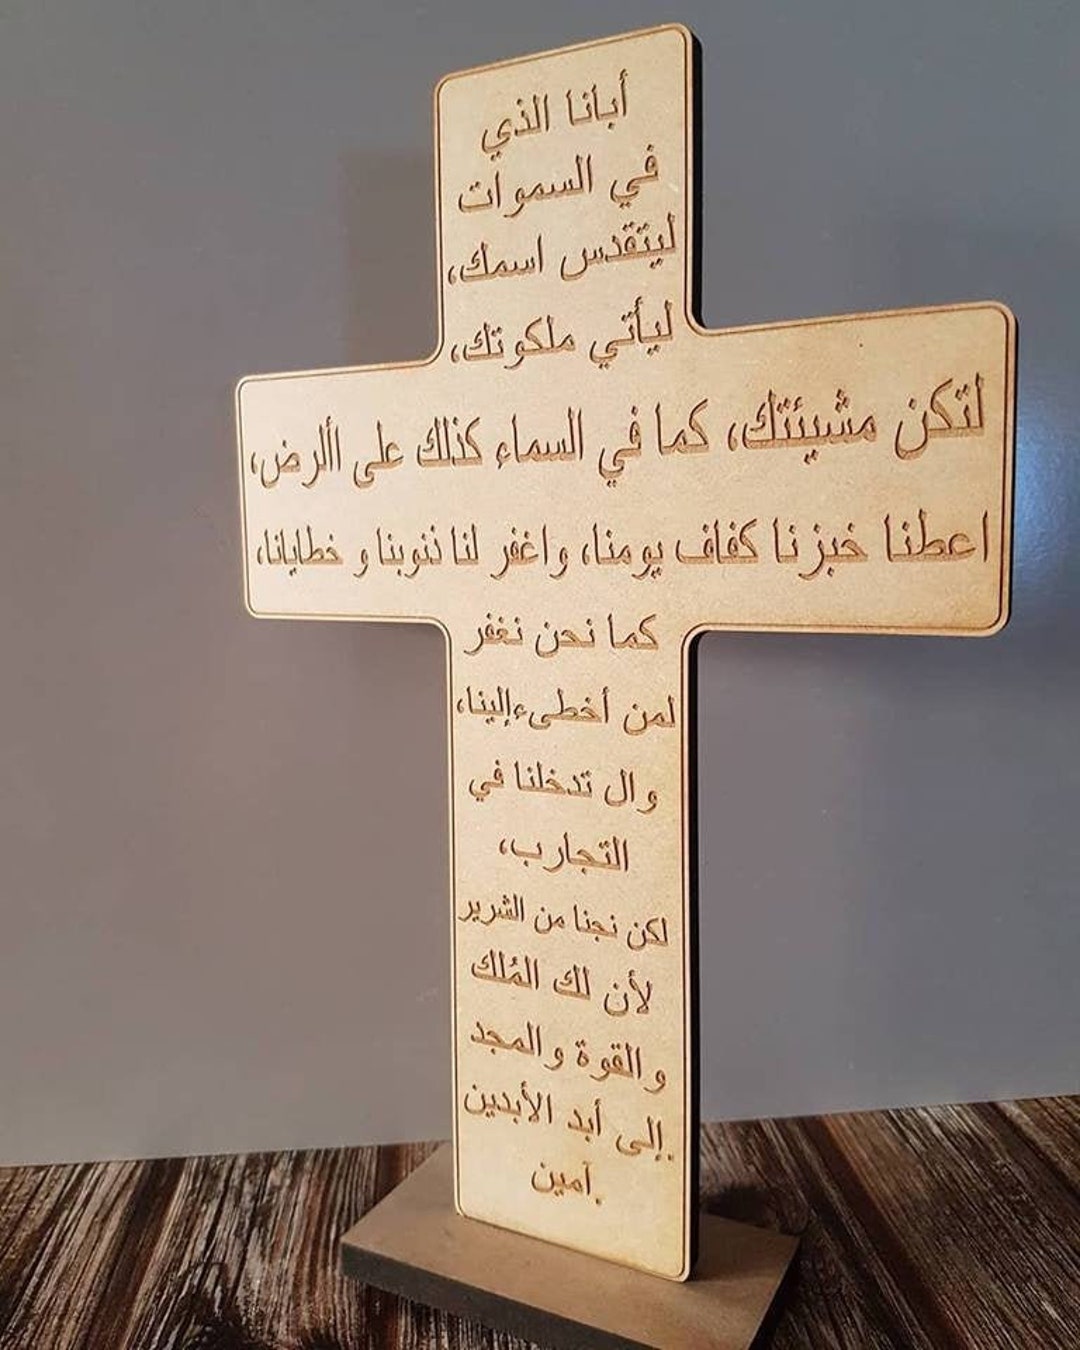 أبانا الذي
في السموات
ليتقدس اسمك،
ليأتي ملكوتك،
لتكن مشيئتك، كما في السماء كذلك على األرض،
اعطنا خبزنا كفاف يومنا، واغفر لنا ذنوبنا و خطايانا،
كما نحن نغفر
لمن أخطىءإلينا،
وال تدخلنا في
التجارب،
لكن نجنا من الشرير
لأن لك المُلك
والقوة والمجد
.إلى أبد الأبدين
.آمين